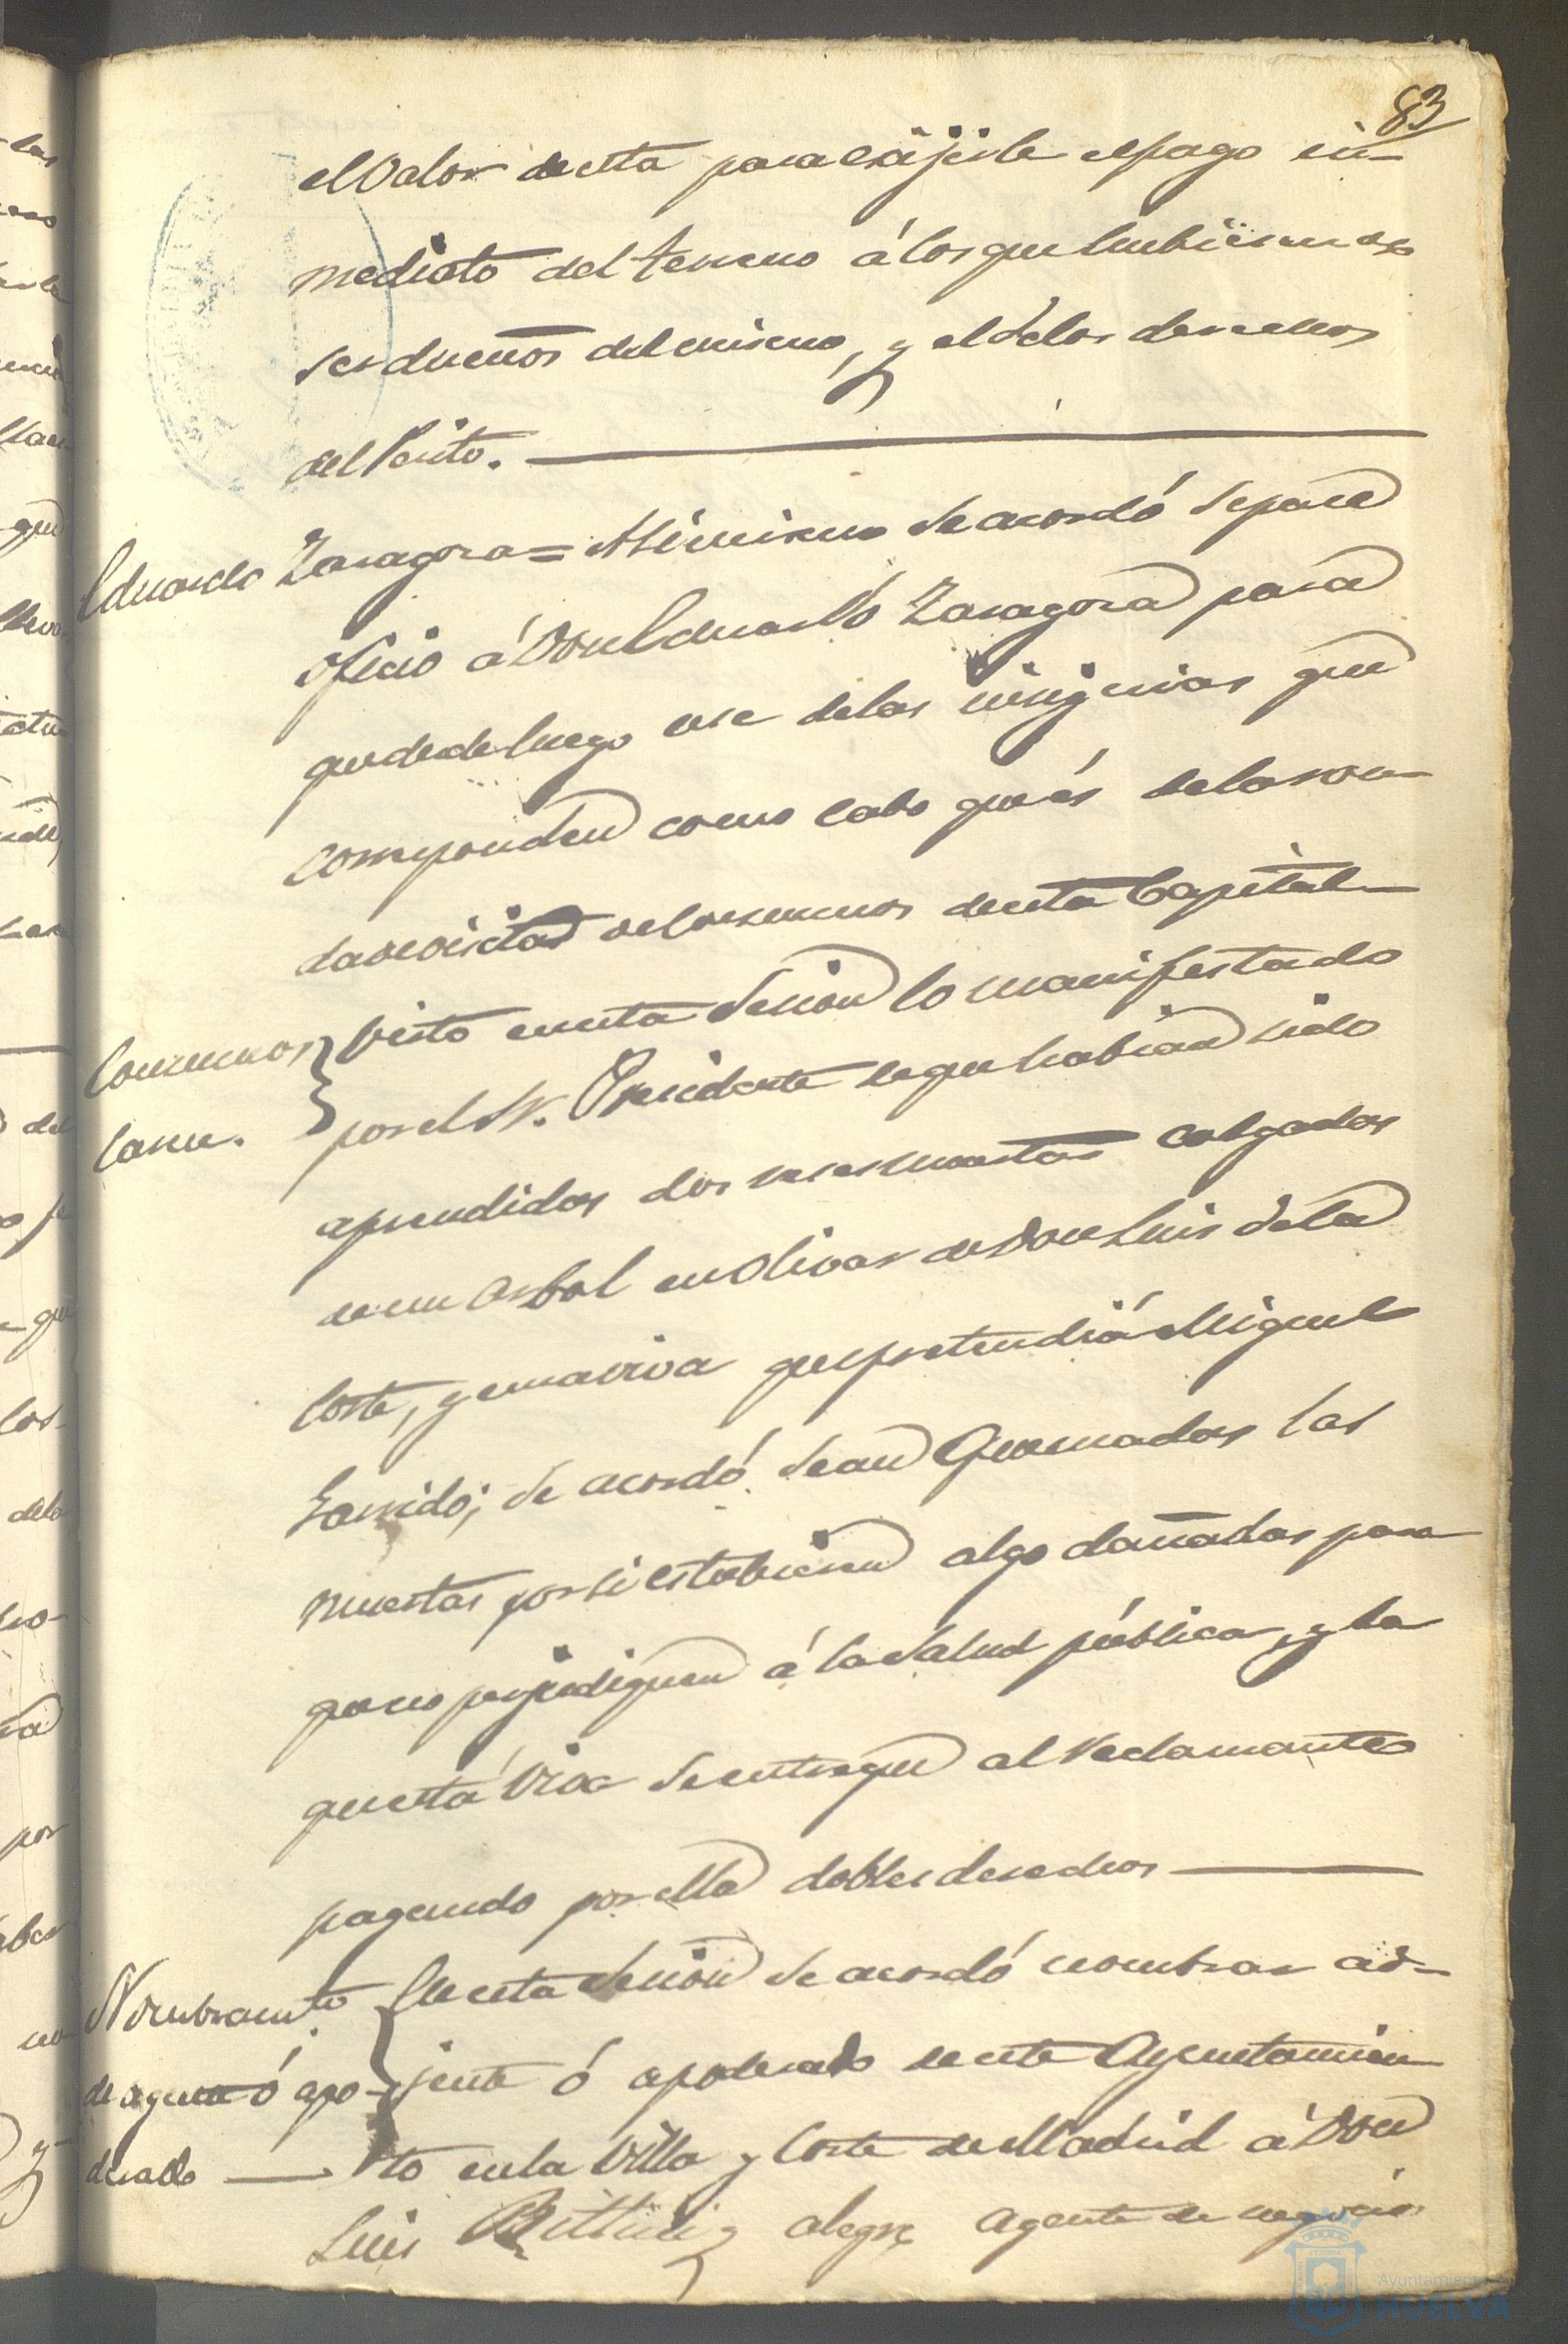 83
el valor de esta para exijirle el pago in-
mediato del terreno á los que hubiesen de
ser dueños del mismo, y el de los derechos
del Perito.
Eduardo Zaragoza = Asimismo se acordó se pase
oficio á Don Eduardo Zaragoza para
que desde luego use de las insignias que
corresponden como cabo que és de la ron-
da de visitas de consumos de esta Capital
Consumos
Carne.
Visto en esta sesion lo manifestado
por el Sr. Presidente de que habian sido
aprendidas dos reses muertas colgadas
de un arbol en olivar de Don Luis de la
Corte, y una viva que pretendia Miguel
Garrido; se acordó sean quemadas las
muertas por si estubiesen algo dañadas para
que no perjudiquen á la salud pública, y la
que está viva se entregue al reclamante
pagando por ella dobles derechos
Nombramto
de agente ó apo-
derado
En esta sesion se acordó nombrar a
jente ó apoderado de este Ayuntamien
to en la Villa y Corte de Madrid á Don
Luis y alegre agente de negocios
Ayuntamiento de
HUELVA